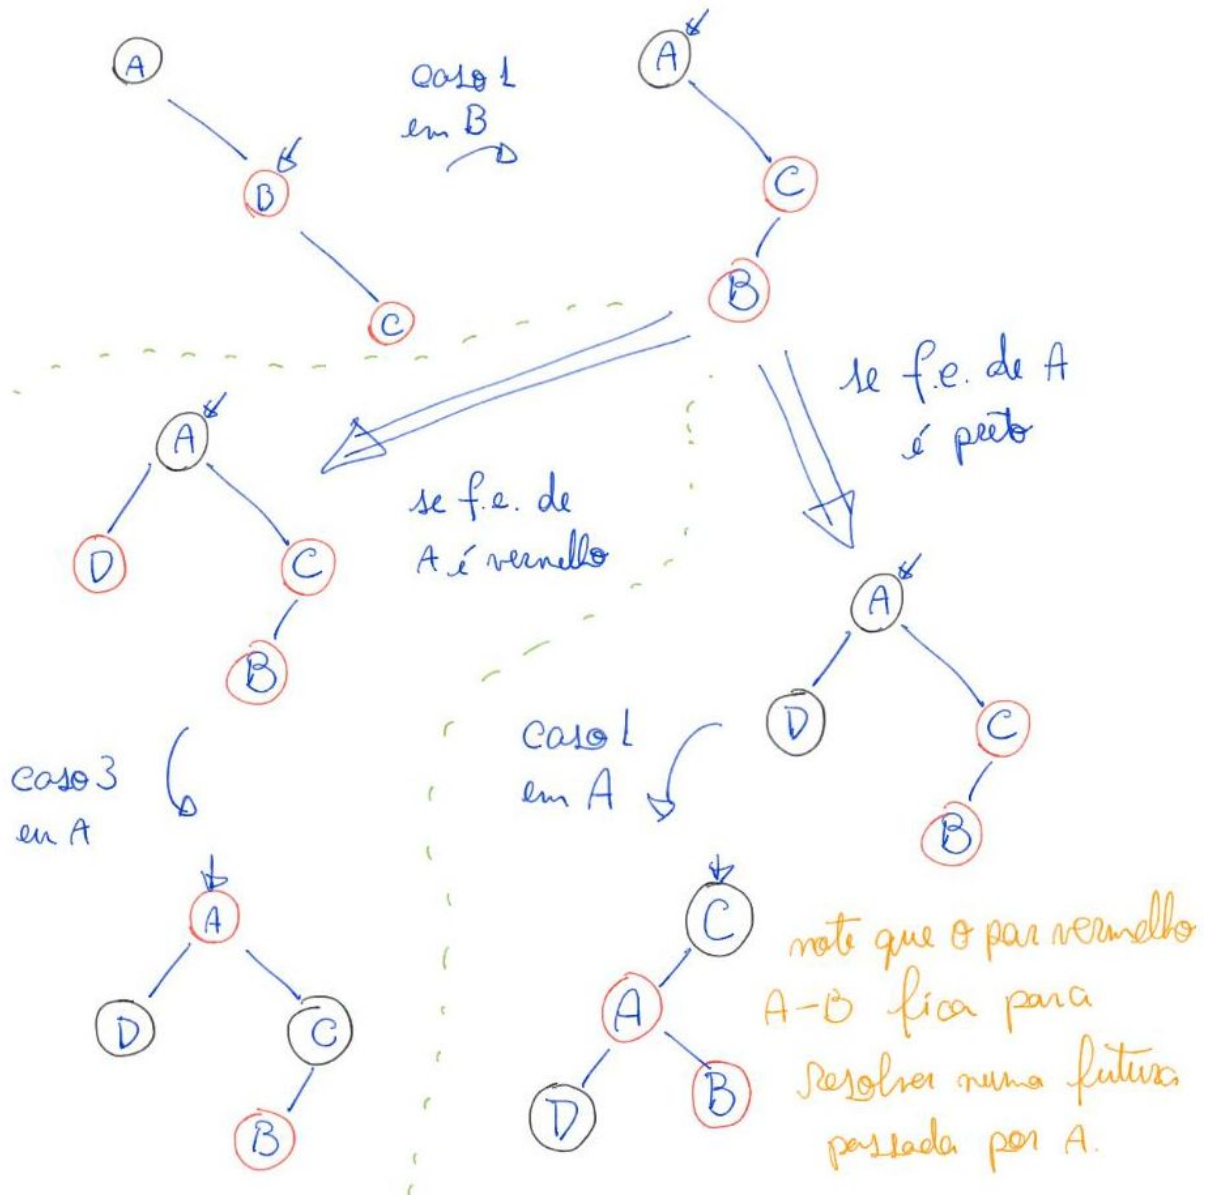 A
B
C
caso 1
em B
A
C
B
se f.e. de A
é preto
A
D
C
B
se f.e. de
A é vermelho
A
D
C
B
caso 3
em A
A
D
C
B
caso 1
em A
C
A
D
B
note que o par vermelho
A-B fica para
resolver numa futura
passada por A.